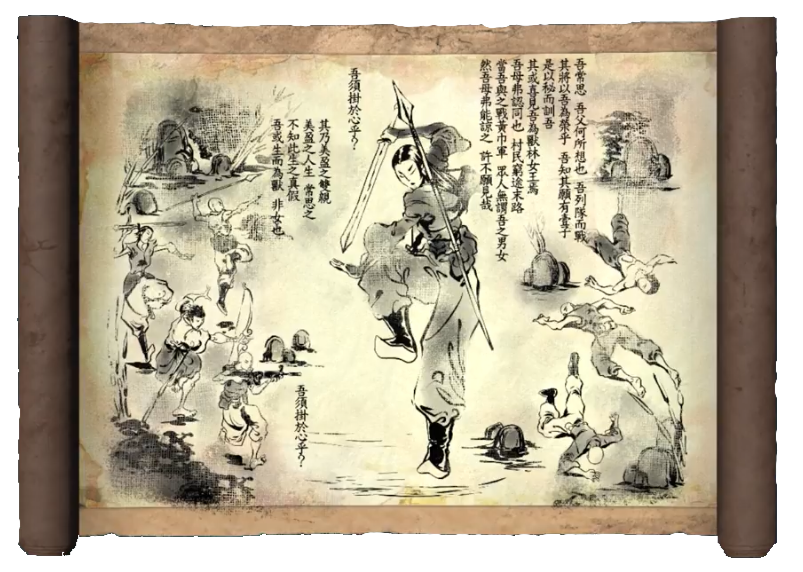 吾常思 吾父何所想也 吾列隊而戰
其將以吾為榮乎 吾知其願有壹子
是以秘而訓吾
其或喜見吾為獸林女王焉
吾母弗認同也 村民窮途末路
當吾與之戰黃巾軍 眾人無謂吾之男女
然吾母弗能諒之 許不願見哉
吾須掛於心乎？
其乃美盈之雙親
美盈之人生 常思之
不知此生之真假
吾或生而為獸 非女也
吾須掛於心乎？